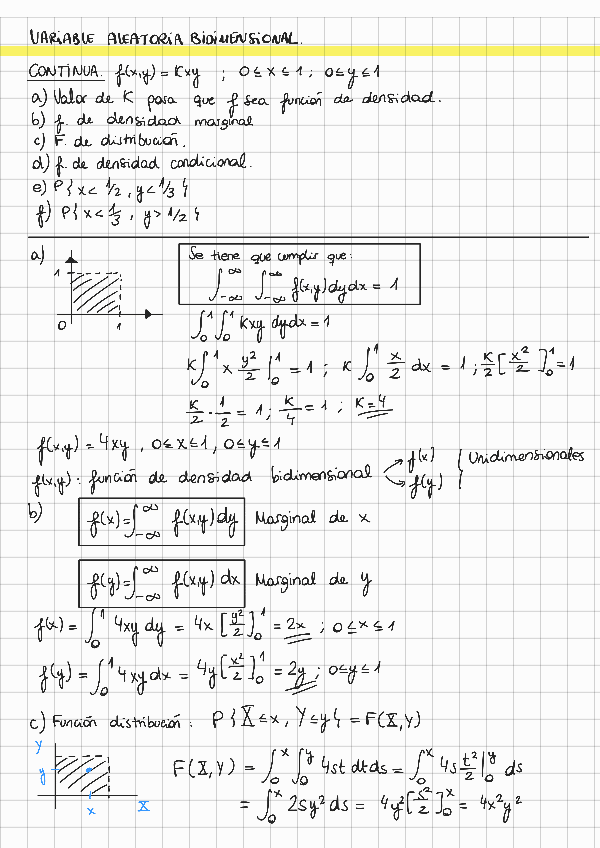 VARIABLE ALEATORIA BIDIMENSIONAL.
CONTINUA. f(x,y) = Kxy ; 0 ≤ x ≤ 1 ; 0 ≤ y ≤ 1
a) Valor de K para que f sea función de densidad.
b) f. de densidad marginal
c) F. de distribución.
d) f. de densidad condicional.
e) P{ x < 1/2 , y < 1/3 }
f) P{ x < 1/3 , y > 1/2 }
a) 1 0 1
Se tiene que cumplir que:
∫_{-∞}^{∞} ∫_{-∞}^{∞} f(x,y) dy dx = 1
∫_0^1 ∫_0^1 Kxy dy dx = 1
K ∫_0^1 x y²/2 |_0^1 = 1 ; K ∫_0^1 x/2 dx = 1 ; K/2 [x²/2]_0^1 = 1
K/2 · 1/2 = 1 ; K/4 = 1 ; K = 4
f(x,y) = 4xy , 0 ≤ x ≤ 1 , 0 ≤ y ≤ 1
f(x,y) : función de densidad bidimensional f(x) f(y) Unidimensionales
b) f(x) = ∫_{-∞}^{∞} f(x,y) dy Marginal de x
f(y) = ∫_{-∞}^{∞} f(x,y) dx Marginal de y
f(x) = ∫_0^1 4xy dy = 4x [y²/2]_0^1 = 2x ; 0 ≤ x ≤ 1
f(y) = ∫_0^1 4xy dx = 4y [x²/2]_0^1 = 2y ; 0 ≤ y ≤ 1
c) Función distribución : P{ X ≤ x , Y ≤ y } = F(X,Y)
Y y x X
F(X,Y) = ∫_0^x ∫_0^y 4st dt ds = ∫_0^x 4s t²/2 |_0^y ds
= ∫_0^x 2sy² ds = 4y² [s²/2]_0^x = 4x²y²